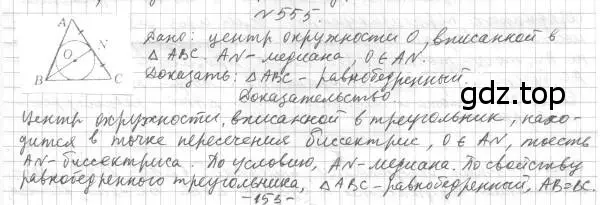 №555.
A
N
O
B
C
Дано: центр окружности O, вписанной в
△ABC. AN-медиана, O∈AN.
Доказать: △ABC-равнобедренный.
Доказательство.
gdz.top
Центр окружности, вписанной в треугольник, нахо-
дится в точке пересечения биссектрис, O∈AN, тоесть
AN-биссектриса. По условию, AN-медиана. По свойству
равнобедренного треугольника, △ABC-равнобедренный, AB=BC.
-153-